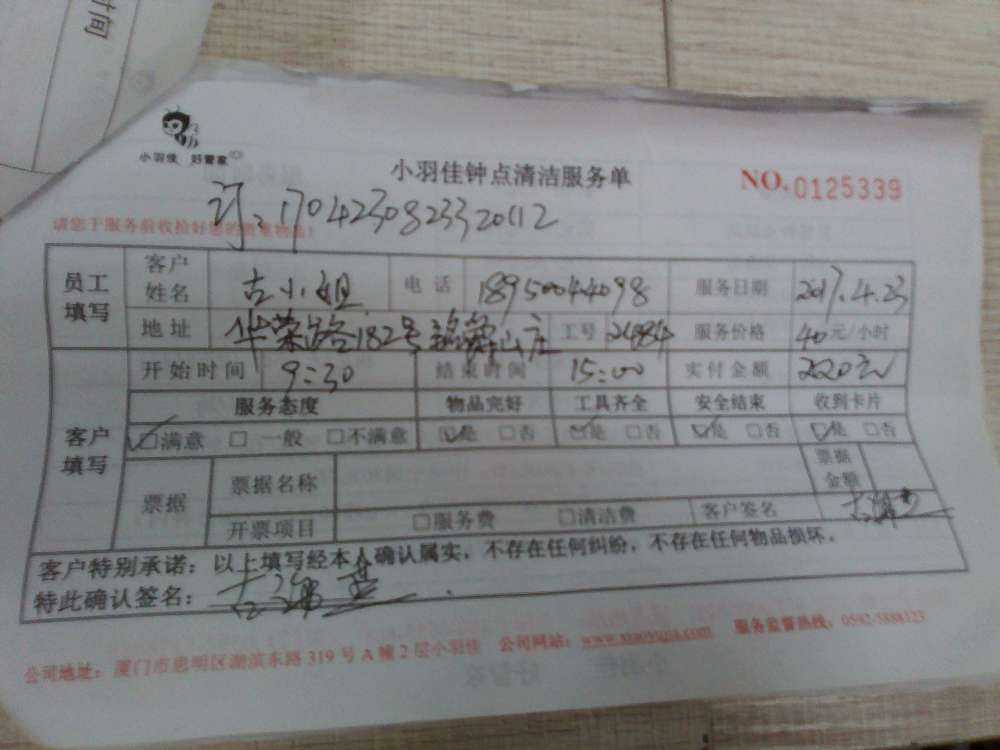 时间
小羽佳 好管家
小羽佳钟点清洁服务单
NO. 0125339
订: 1704230823320112
请您于服务前收拾好您的贵重物品!
员工填写 客户姓名 古小姐 电话 18950044098 服务日期 2017.4.23
地址 华荣路182号 山庄 工号 服务价格 40元/小时
客户填写 开始时间 9:30 结束时间 15:00 实付金额 220元
服务态度 物品完好 工具齐全 安全结束 收到卡片
☑满意 □ 一般 □不满意 ☑是 □否 ☑是 □否 ☑是 □否 ☑是 □否
票据 票据名称 票据金额
开票项目 □服务费 □清洁费 客户签名
客户特别承诺: 以上填写经本人确认属实, 不存在任何纠纷, 不存在任何物品损坏.
特此确认签名:
公司地址: 厦门市思明区湖滨东路 319 号 A 幢 2 层小羽佳 公司网站: www.xiaoyujia.com 服务监督热线: 0592-5888123